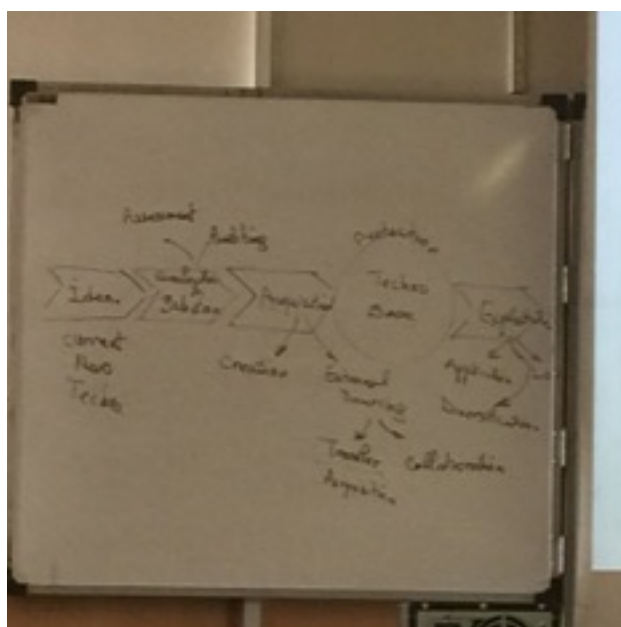 Assessment
Auditing
Protection
Iden.
Evaluation
&
Selection
Acquisition
Techno
Base
Exploitati
Current
New
Techno
Creation
External
Sourcing
Application
Diversification
Transfer
Collaboration
Acquisition